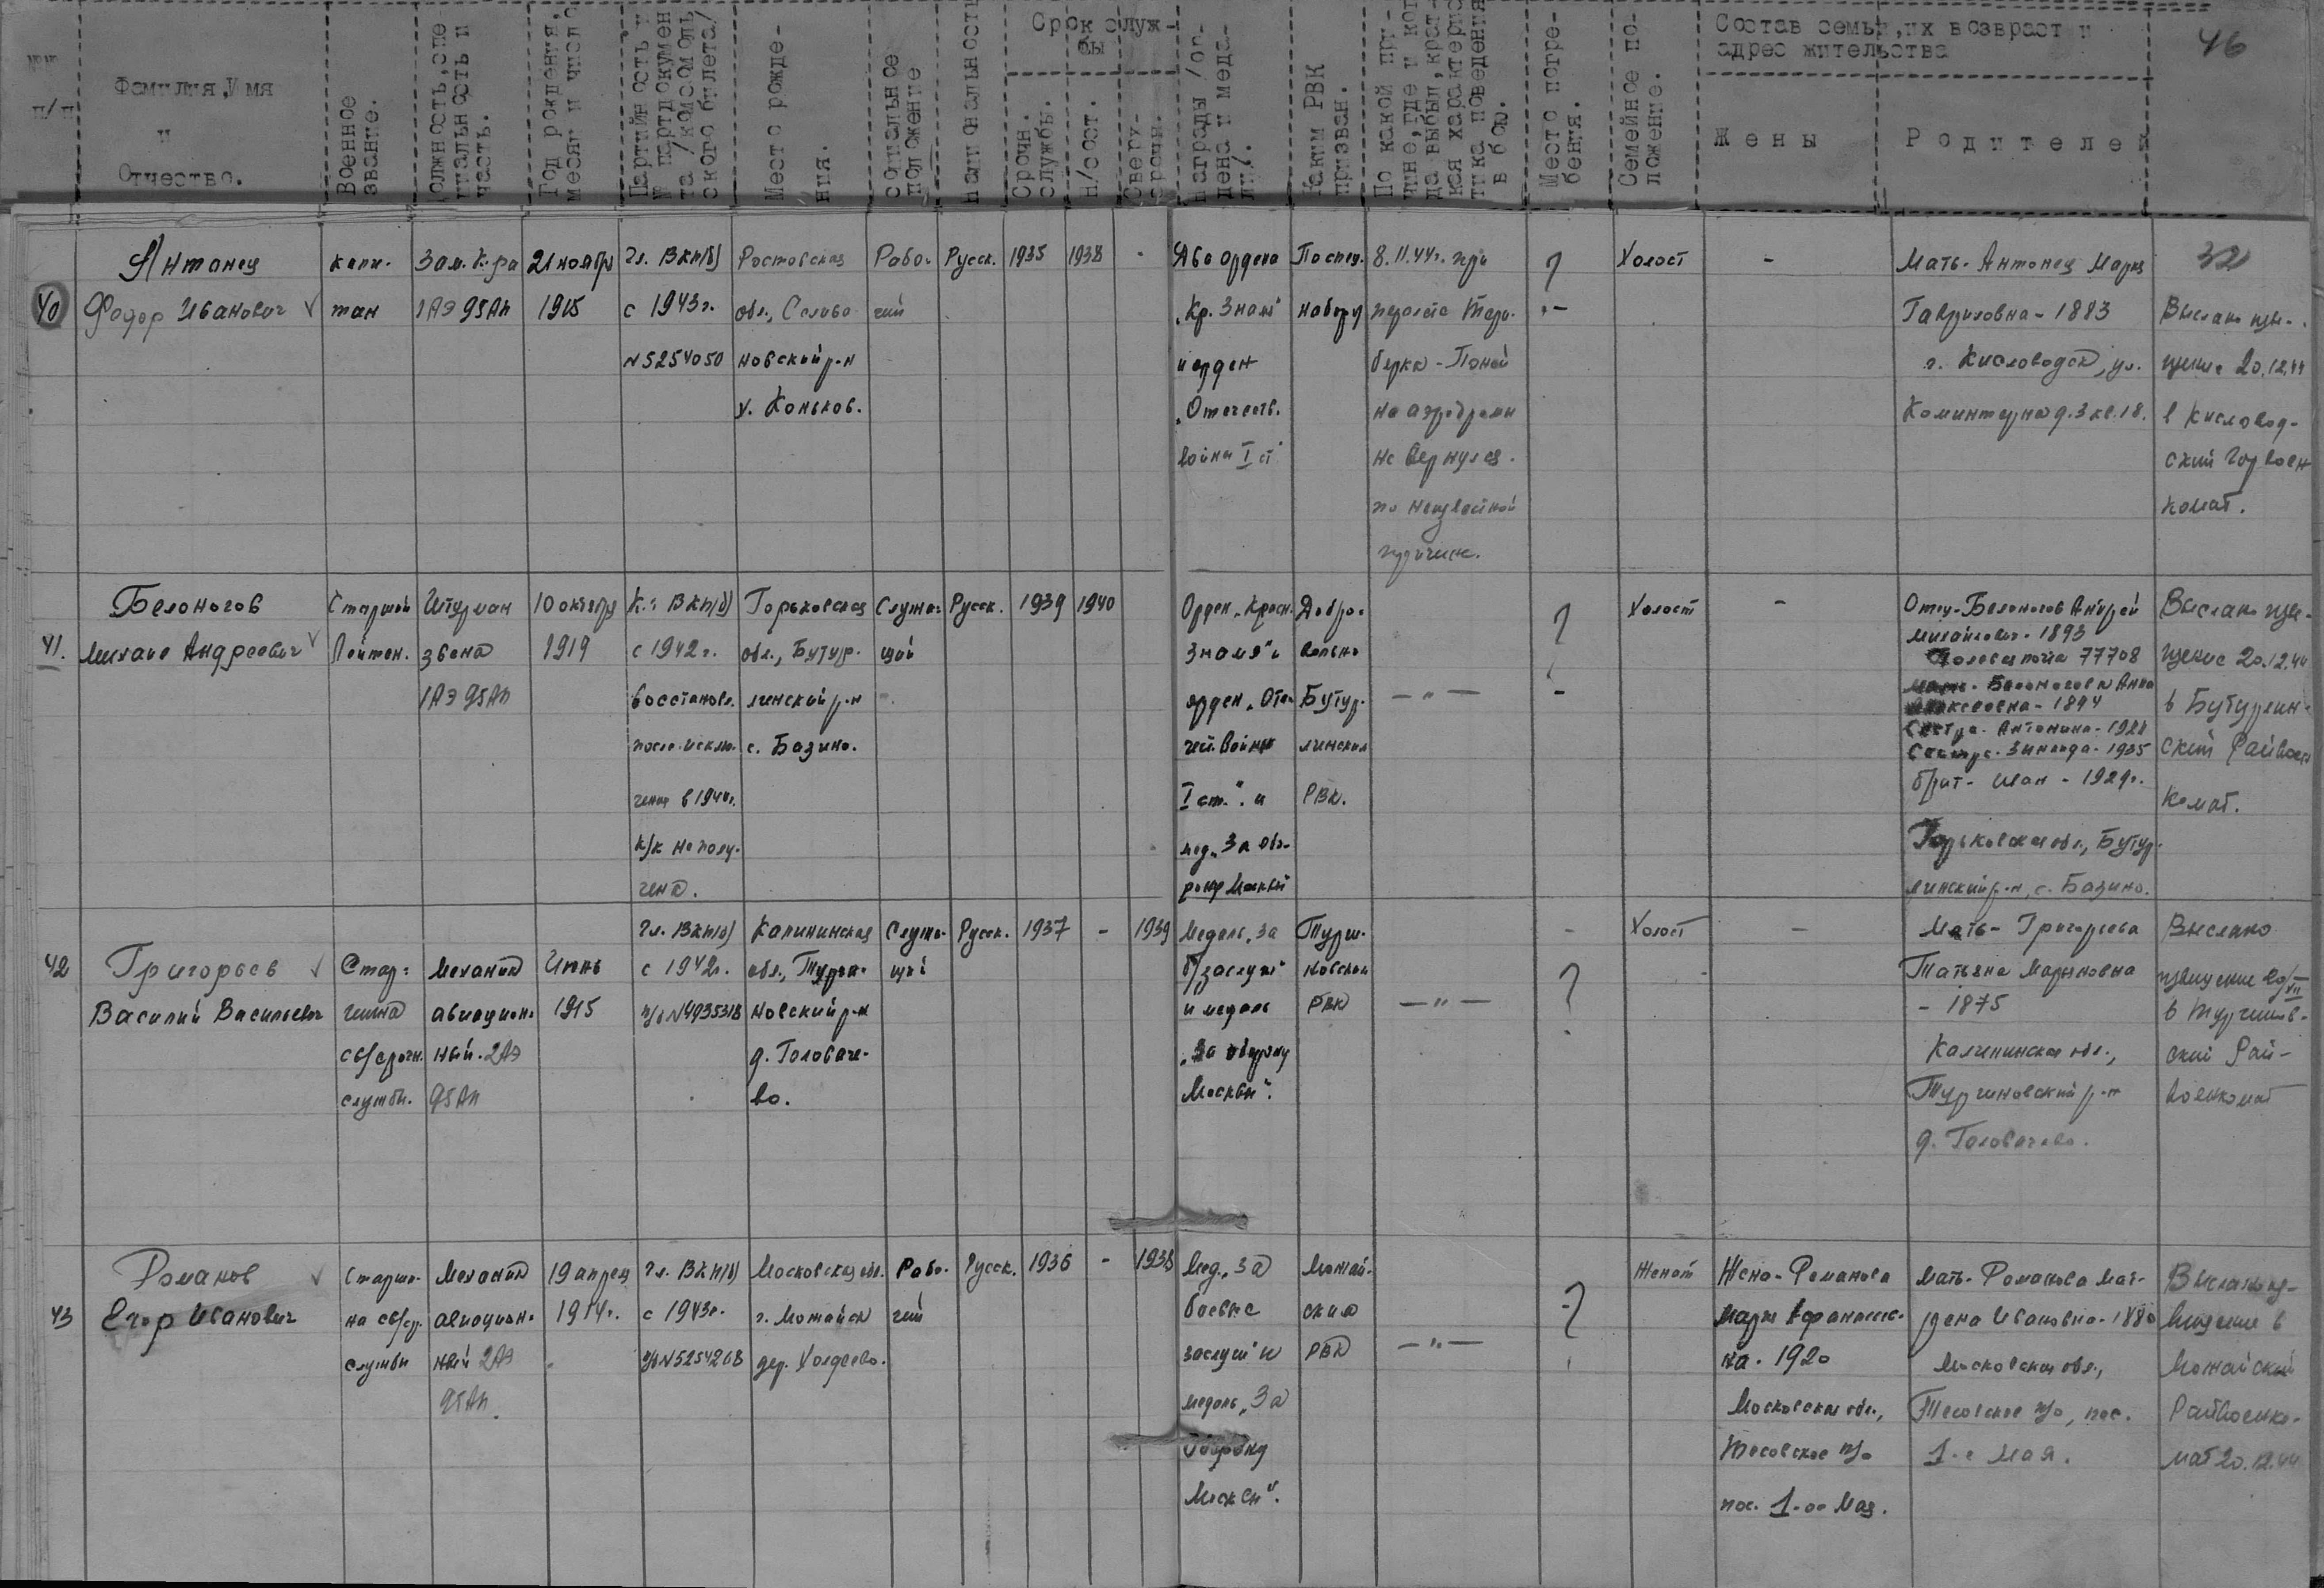 №№ п/п
Фамилия, Имя
и
Отчество.
Военное
звание.
Должность, спе
циальность и
часть.
Год рождения,
месяц и число
Партийность и
№ партдокумен
та /комсомоль
ского билета/
Место рожде-
ния.
Социальное
положение
Национальность
Срок служ-
бы
Срочн.
службы.
н/сост.
Сверх-
срочн.
Награды /ор-
дена и меда-
ли/.
Каким РВК
призван.
По какой при-
чине, где и ког
да выбыл, крат-
кая характерис
тика поведения
в бою.
Место погре-
бения.
Семейное по-
ложение.
Состав семьи, их возраст и
адрес жительства
Жены
Родителей
46
32
40
Антонец
Федор Иванович
капи-
тан
Зам. К-ра
1АЭ 95АП
21 ноября
1915
Чл. ВКП(б)
с 1943г.
№5254050
Ростовская
обл., Селива-
новский р-н
х. Коньков.
Рабо-
чий
Русск.
1935
1938
-
Два ордена
„Кр. Знамя"
и орден
„Отечеств.
войны I ст"
По спец.
набору
8.11.44г. при
перелете Тери-
берка - Поной
на аэродром
не вернулся
по неизвестной
причине.
?
Холост
-
Мать - Антонец Мария
Гавриловна - 1883
г. Кисловодск, ул.
Коминтерна д. 3 кв. 18.
Выслано изве-
щение 20.12.44
в Кисловод-
ский Горвоен
комат.
41.
Белоногов
Михаил Андреевич
Старший
Лейтен.
Штурман
звена
1АЭ 95АП
10 октября
1919
К. ВКП(б)
с 1942г.
восстановл.
после исклю-
чения в 1944г.
к/к не полу-
чена.
Горьковская
обл., Бутур-
линский р-н
с. Базино.
Служа-
щий
Русск.
1939
1940
Орден „Красн.
Знамя" и
орден „Оте-
чест. Войны
I ст." и
мед. „За обо-
рону Москвы"
Добро-
вольно
Бутур-
линским
РВК.
— " —
?
-
Холост
-
Отец - Белоногов Андрей
Михайлович - 1893
Полевая почта 77708
Мать - Белоногова Анна
Алексеевна - 1894
Сестра - Антонина - 1928
Сестра - Зинаида - 1935
брат - Иван - 1929г.
Горьковская обл., Бутур-
линский р-н, с. Базино.
Выслано изве-
щение 20.12.44
в Бутурлин-
ский Райвоен
комат.
42
Григорьев
Василий Васильевич
Стар-
шина
св/срочн.
службы.
Механик
авиацион-
ный - 2АЭ
95АП
Июнь
1915
Чл. ВКП(б)
с 1942г.
п/б №4935318
Калининская
обл., Турги-
новский р-н
д. Головаче-
во.
Служа-
щий
Русск.
1937
-
1939
Медаль „За
б/заслуги"
и медаль
„За оборону
Москвы".
Турги-
новским
РВК
— " —
-
?
Холост
-
Мать - Григорьева
Татьяна Мароновна
- 1875
Калининская обл.,
Тургиновский р-н
д. Головачево.
Выслано
извещение 20/XII
в Тургинов-
ский Рай-
военкомат
43
Романов
Егор Иванович
Старши-
на св/ср.
службы
Механик
авиацион-
ный 2АЭ
95АП.
19 апреля
1914г.
Чл. ВКП(б)
с 1943г.
п/б №5254268
Московская обл.
г. Можайск
дер. Холдеево.
Рабо-
чий
Русск.
1936
-
1938
Мед. „За
боевые
заслуги" и
медаль „За
оборону
Москвы".
Можай-
ским
РВК
— " —
?
Женат
Жена - Романова
Мария Афанасьев-
на - 1920
Московская обл.,
Тесовское п/о
пос. 1-ое Мая.
Мать - Романова Мат-
рена Ивановна - 1880
Московская обл.,
Тесовское п/о, пос.
1-е Мая.
Выслано из-
вещение в
Можайский
Райвоенко-
мат 20.12.44